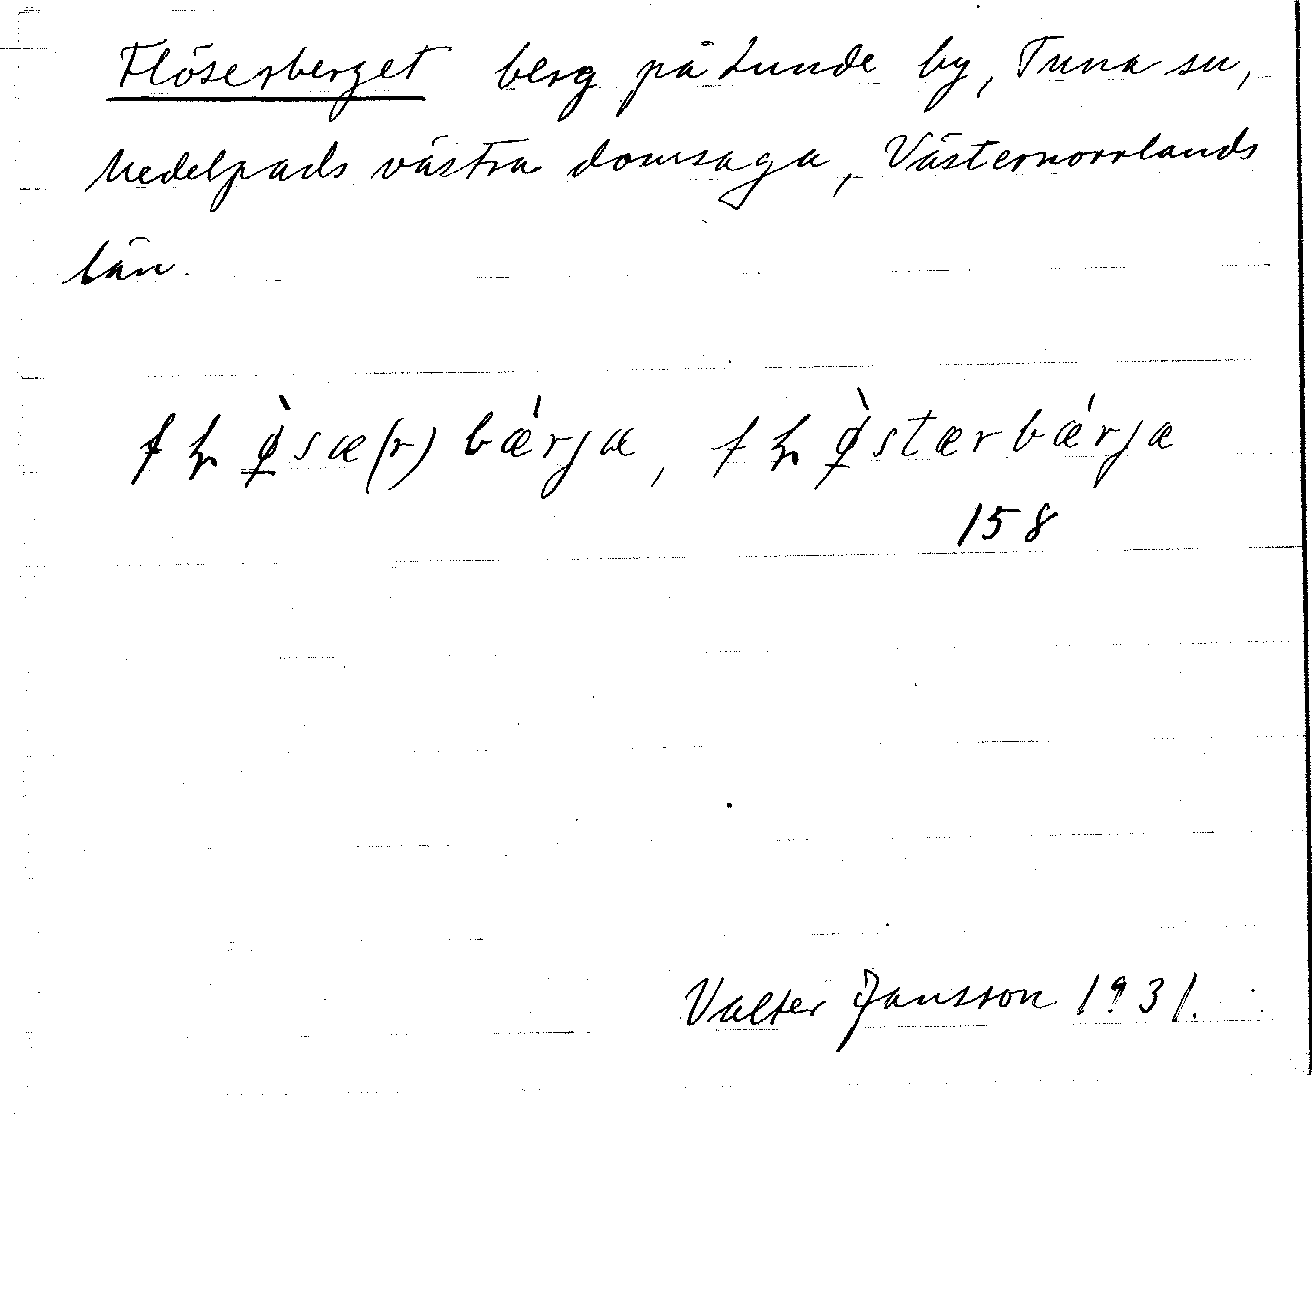 Flöserberget berg på Lunde by, Tuna sn,
Medelpads västra domsaga, Västernorrlands
län.
fꞭø̲̀sæ(r)bǽrjæ, fꞭø̲̀stærbǽrjæ
158
Valter Jansson 1931.